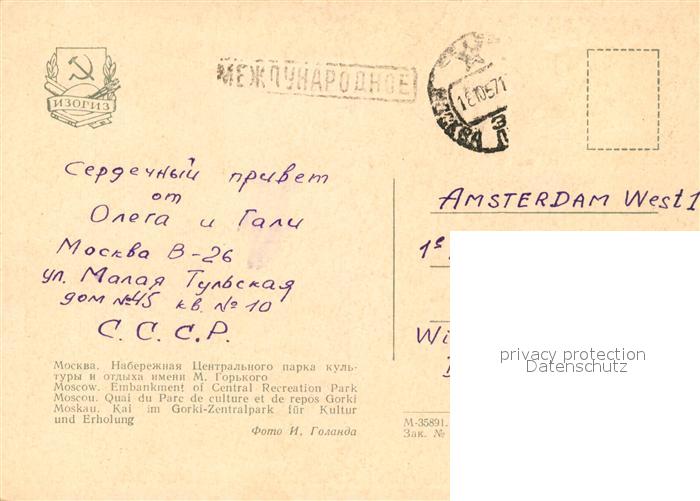 ИЗОГИЗ
МЕЖДУНАРОДНОЕ
МОСКВА
Сердечный привет
от
Олега и Гали
Москва В-26
ул. Малая Тульская
дом №45 кв. №10
С.С.С.Р.
Москва. Набережная Центрального парка куль-
туры и отдыха имени М. Горького
Moscow. Embankment of Central Recreation Park
Moscou. Quai du Parc de culture et de repos Gorki
Moskau. Kai im Gorki-Zentralpark für Kultur
und Erholung
Фото И. Голанда
AMSTERDAM West 1
1e
Wi
privacy protection
Datenschutz
М-35891.
Зак. №